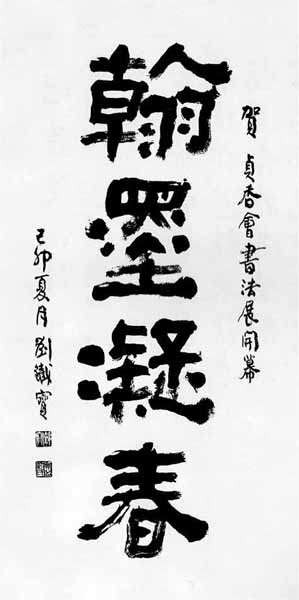 賀貞香會書法展開幕
翰墨凝春
己卯夏月劉鐵寶